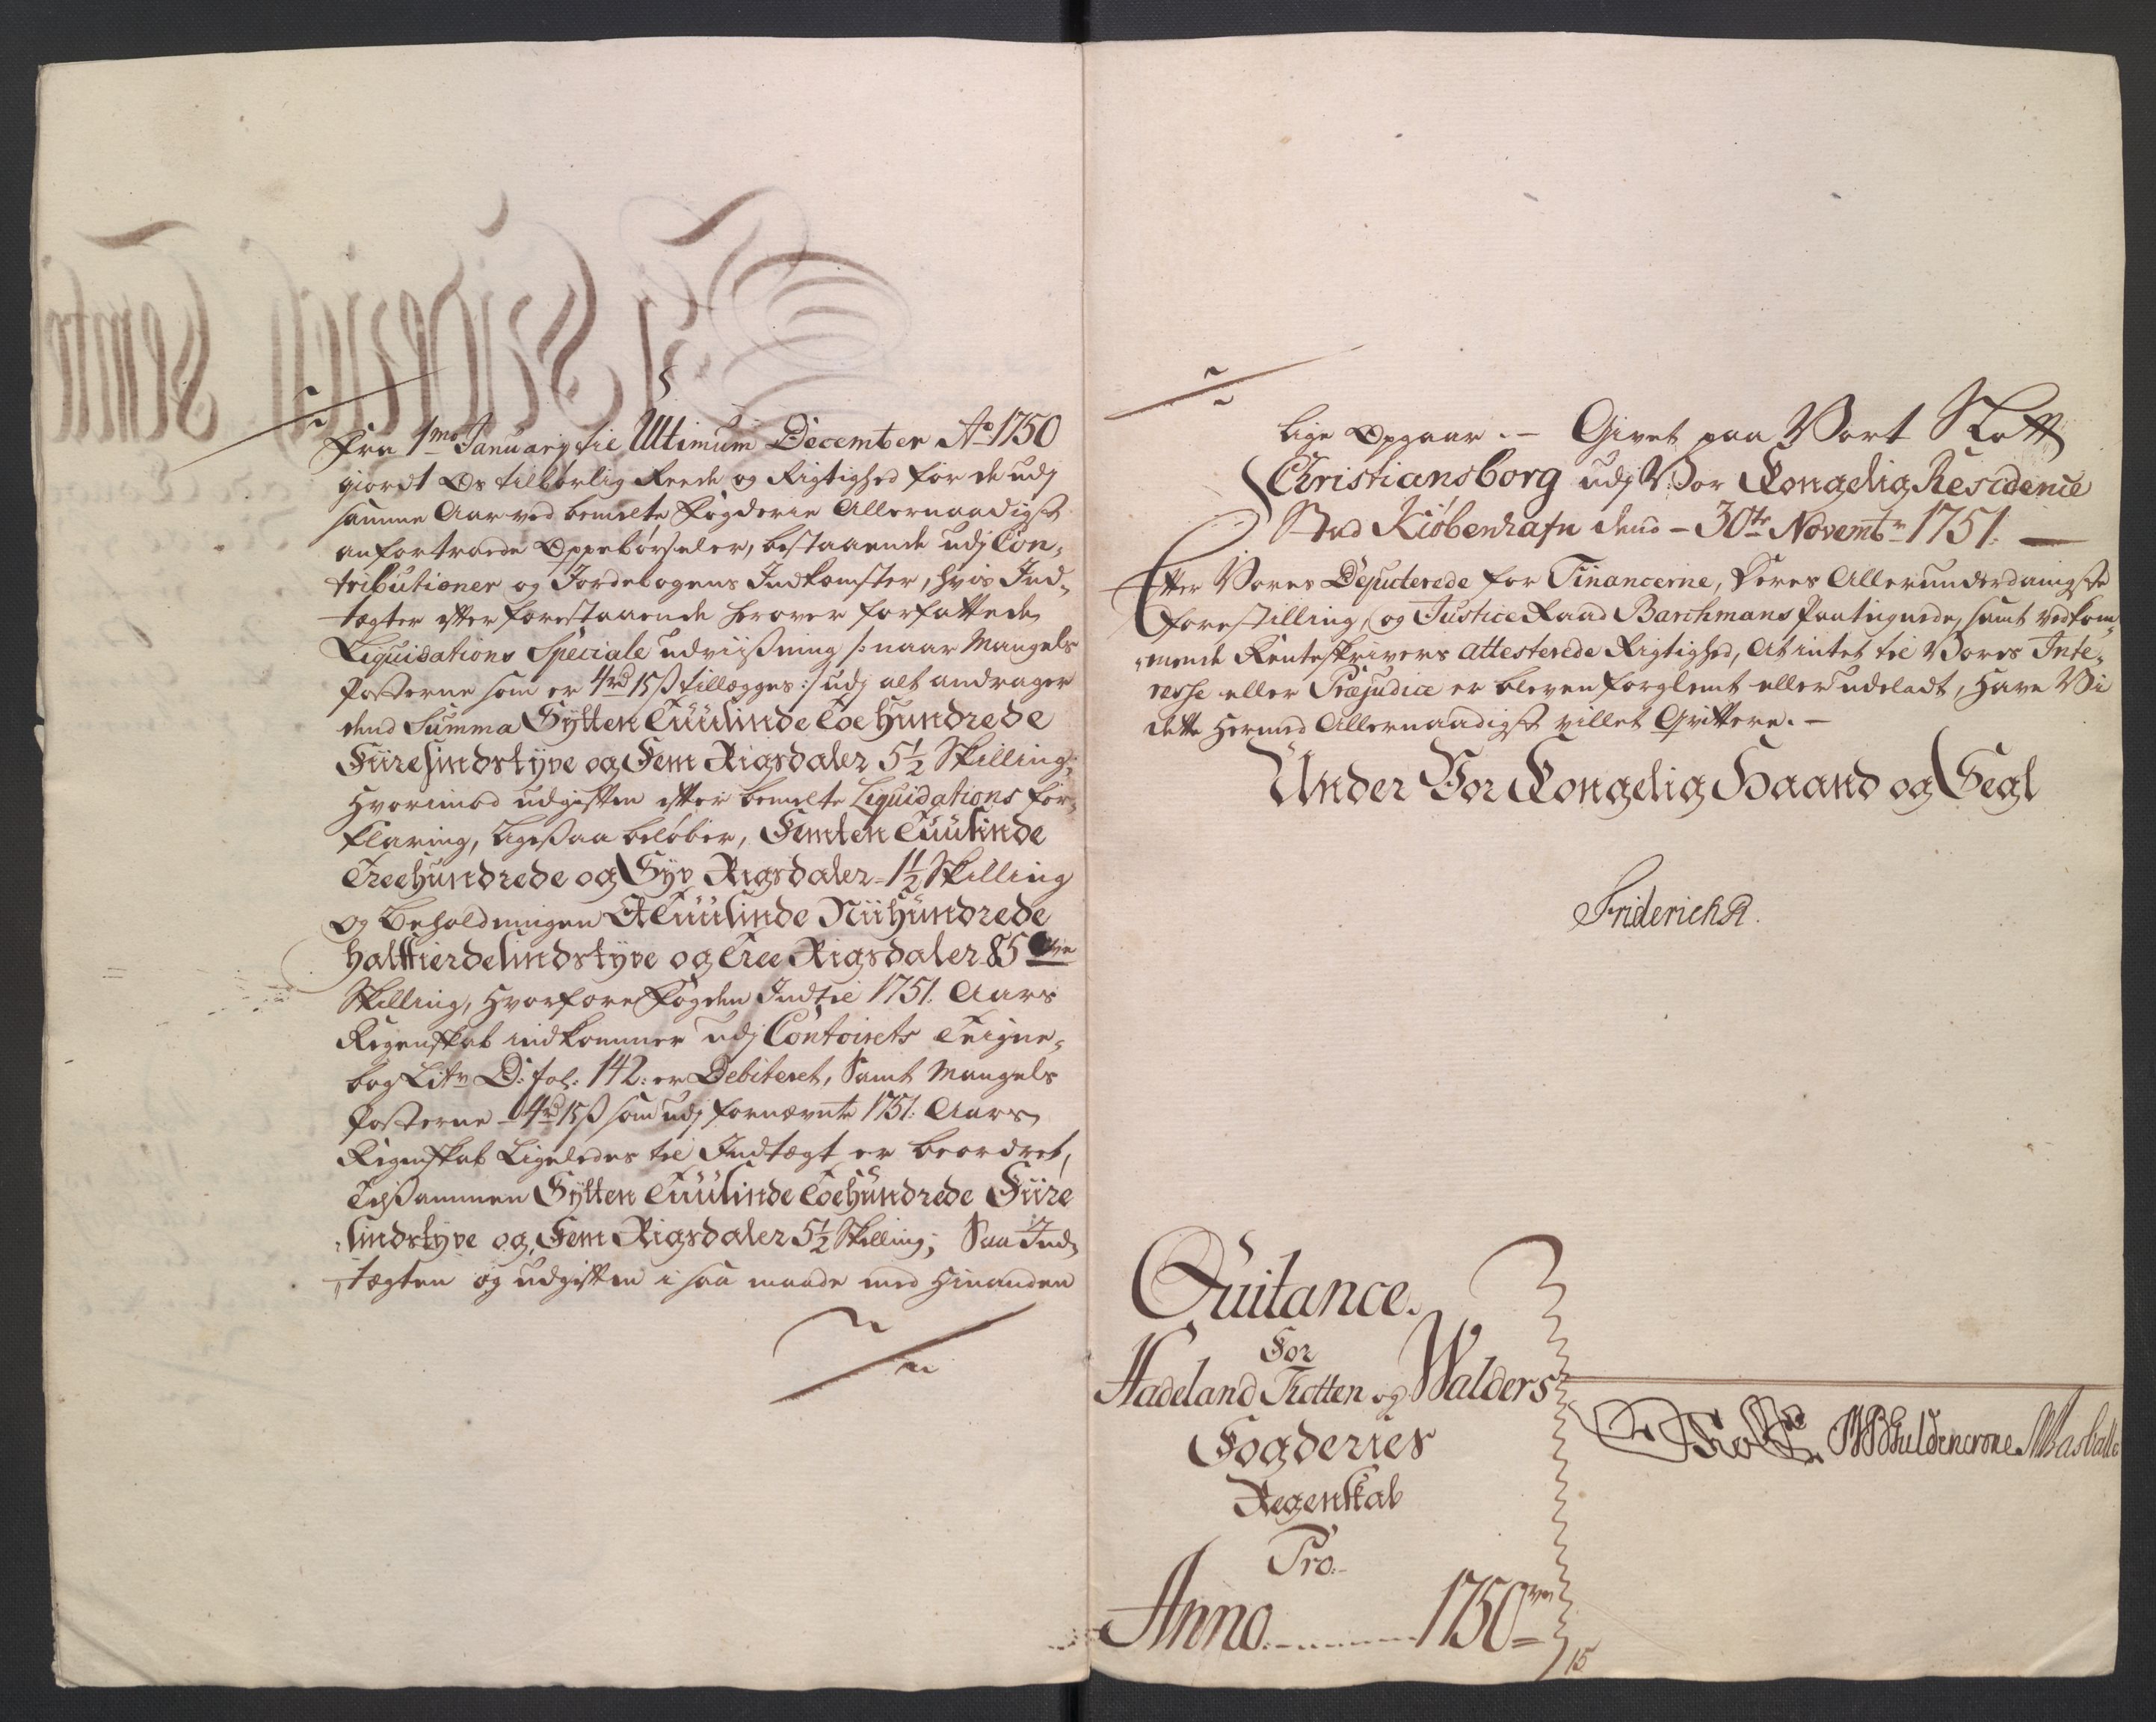 Fra 1mo January til Ultimum December Ao 1750
giordt Os tilbørlig Reede og Rigtighed for de udj
samme Aar ved bemelte Fogderie Allernaadigst
anfortroede Oppebørseler, bestaaende udj Con-
tributioner og Jordebogens Indkomster, hvis Ind-
tægter efter forestaaende herover forfattede
Liquidations Speciale udviisning /: naar Mangels
Posterne som er 4rd 15ß tillægges :/ udj alt andrager
dend Summa Sytten Tuusinde Toe Hundrede
Fiiresindstyve og Fem Rigsdaler 5½ Skilling;
Hvorimod udgiften efter bemelte Liquidations for-
klaring, ligesaa beløber, Femten Tuusinde
Treehundrede og Syv Rigsdaler 1½ Skilling
og Beholdningen Et Tuusinde Niihundrede
halffierdesindstyve og Tree Rigsdaler 85
Skilling, Hvorfore Fogden Ind til 1751. Aars
Regenskab indkommer udj Contoirets Teigne-
bog Litr D: fol: 142: er Debiteret, Samt Mangels
Posterne 4rd 15ß som udj fornævnte 1751. Aars
Regenskab Ligeledes til Indtægt er beordret,
Tilsammen Sytten Tuusinde Toehundrede Fiire
sindstyve og Fem Rigsdaler 5½ Skilling; Saa Ind-
tægten og udgiften i saa maade med hinanden
lige opgaar. – Givet paa Vort Slott
Christiansborg udj Vor Kongelig Residence
Stad Kiøbenhafn dend – 30te Novembr 1751. —
Efter Vores Deputerede for Financerne, deres Allerunderdanigste
forestilling, og Justice Raad Barchmans Paategnede, samt vedkom-
mende Renteskrivers attesterede Rigtighed, At intet til Vores Inte-
resse eller Præjudice er bleven forglemt eller udeladt, have Vi
dette hermed Allernaadigst villet Qvittere. –
Under Vor Kongelig Haand og Segl
Friderich R.
Quitance.
For
Hadeland Totten og Walders
Fogderies
Regenskab
Pro.
Anno 1750
Güldencrone
15